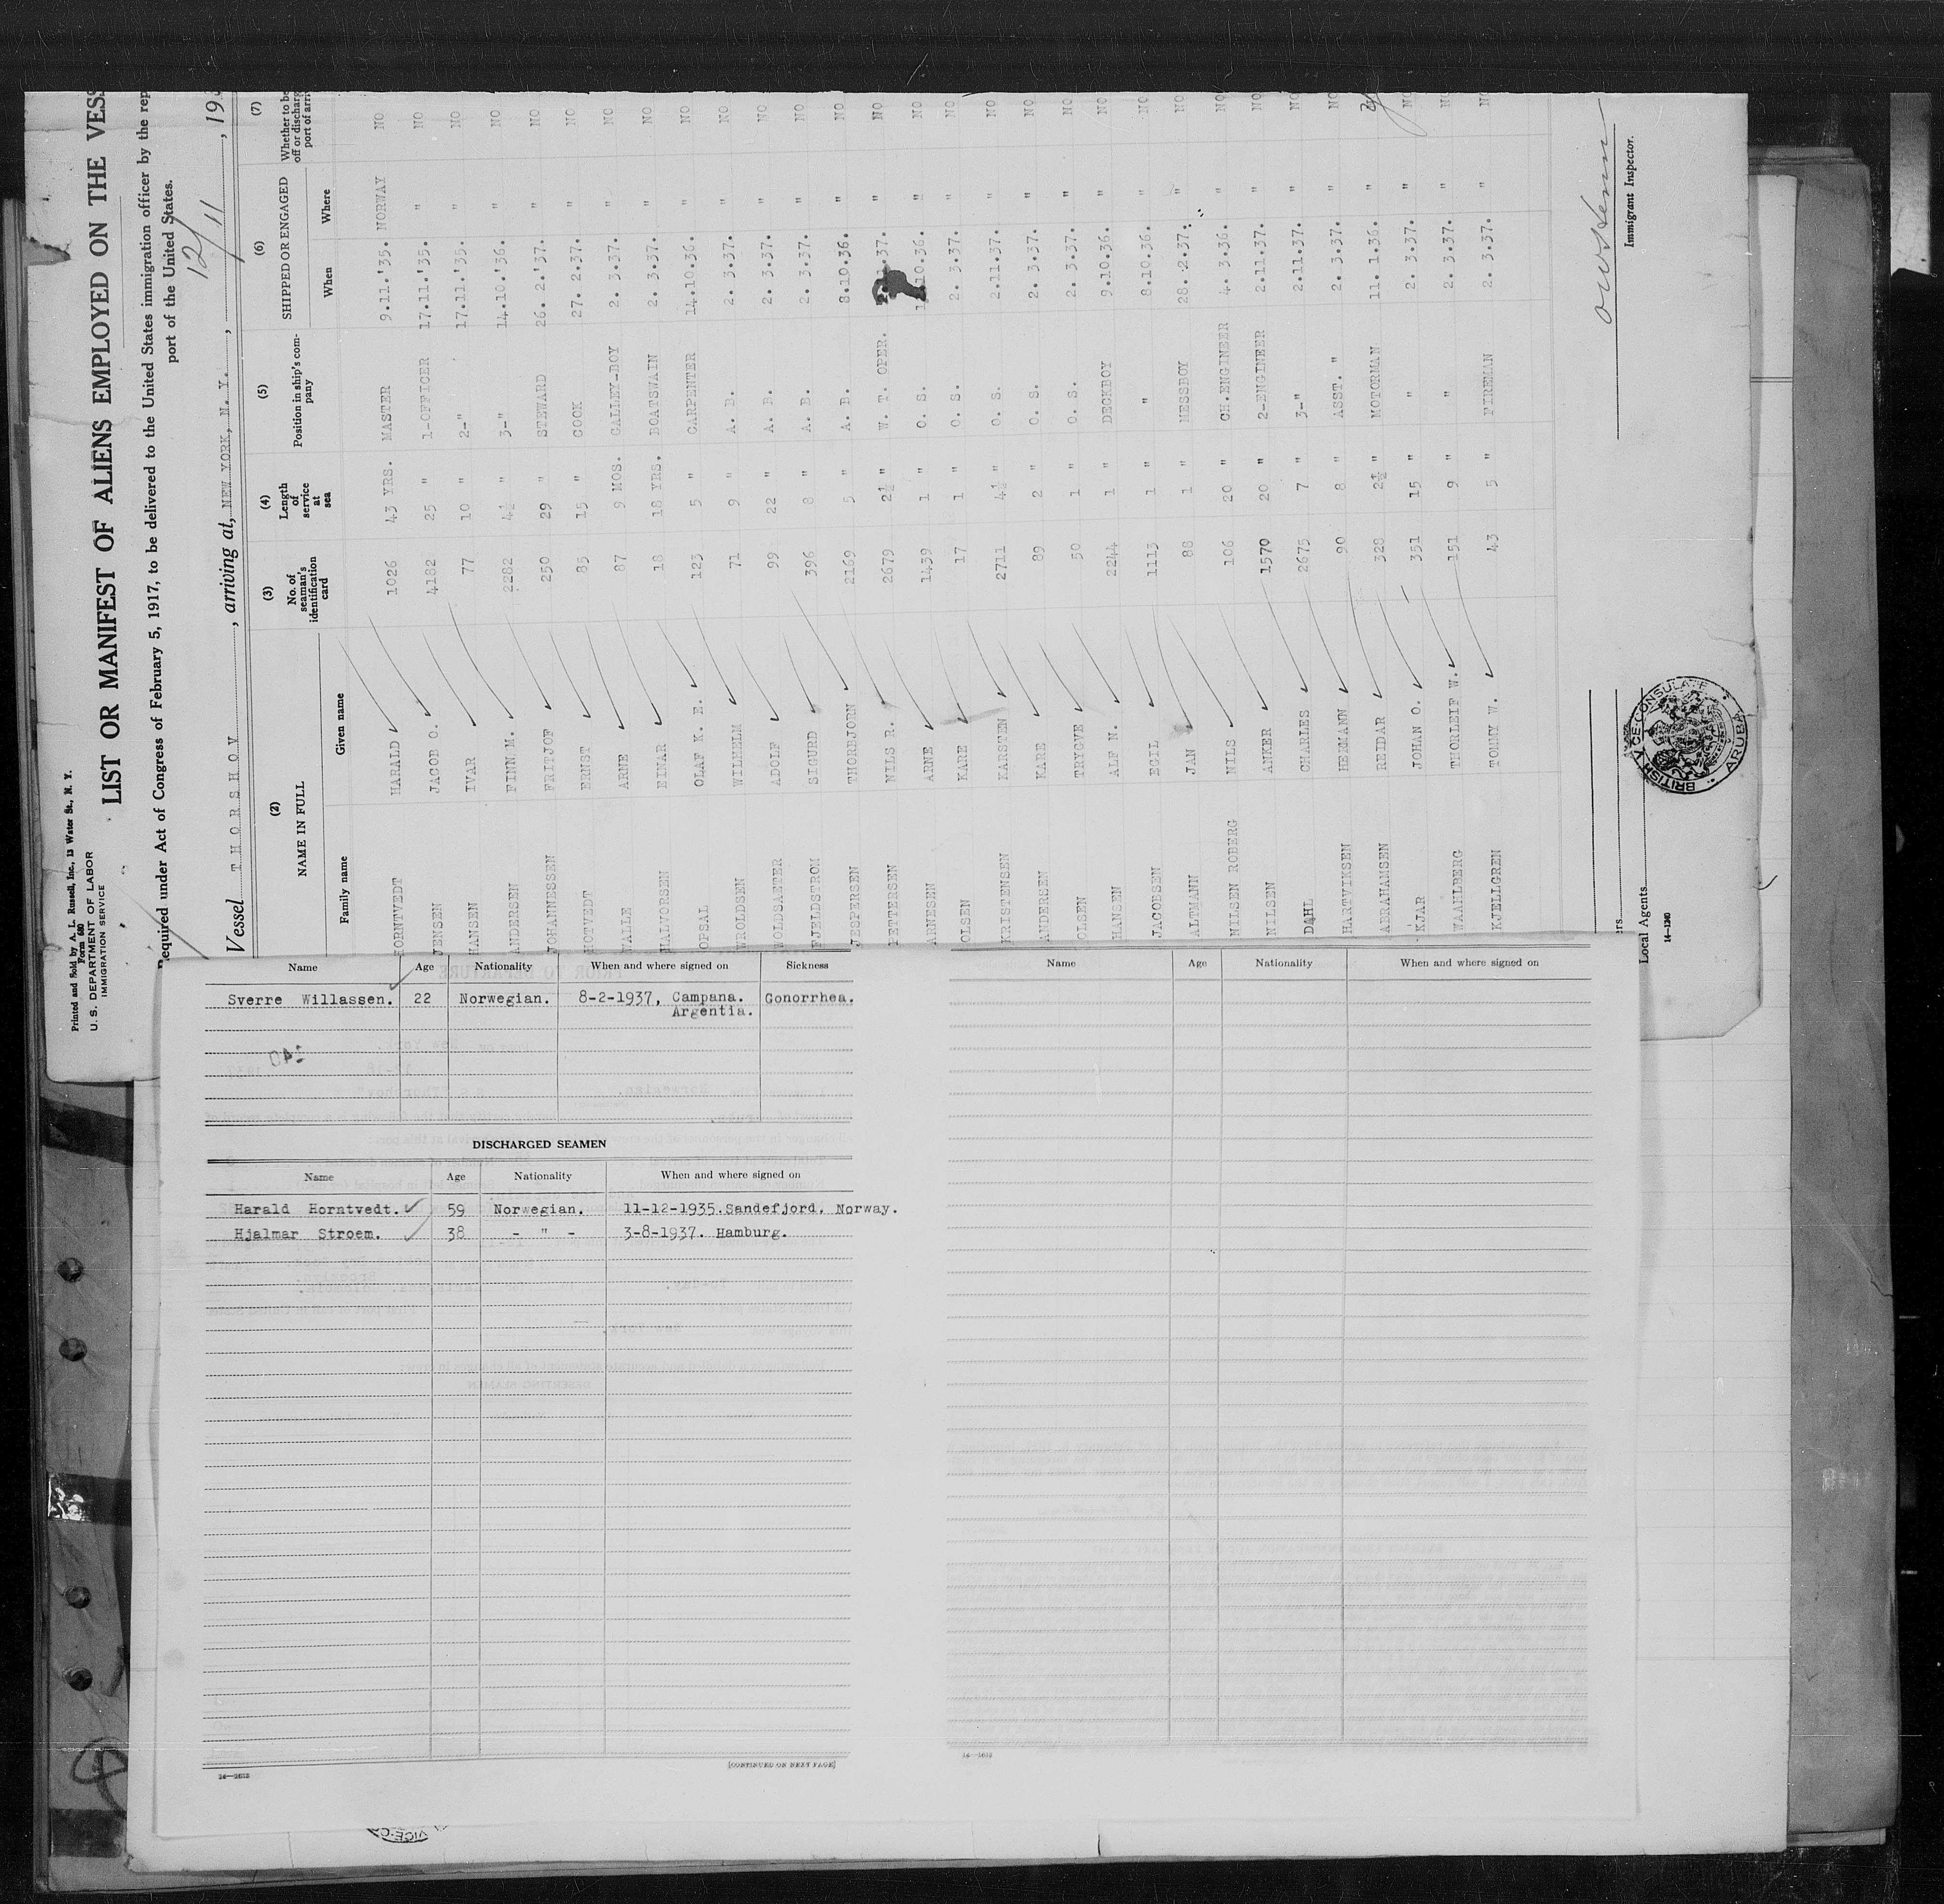 Printed and Sold by A. L. Russell, Inc., 13 Water St., N. Y.
Form 680
U. S. DEPARTMENT OF LABOR
IMMIGRATION SERVICE
LIST OR MANIFEST OF ALIENS EMPLOYED ON THE VESS
Required under Act of Congress of February 5, 1917, to be delivered to the United States immigration officer by the rep
port of the United States.
Vessel THORSHOV, arriving at, NEW YORK, N. Y., 12/11, 193
(2) (3) (4) (5) (6) (7)
NAME IN FULL No. of seaman's identification card Length of service at sea Position in ship's company SHIPPED OR ENGAGED Whether to be
off or discharg
port of arri
Family name Given name When Where
HORNTVEDT HARALD 1026 43 YRS. MASTER 9.11.'35. NORWAY NO
JENSEN JACOB O. 4182 25 " 1-OFFICER 17.11.'35. " NO
HANSEN IVAR 77 10 " 2-" 17.11.'35. " NO
ANDERSEN FINN M. 2282 4½ 3-" 14.10.'36. " NO
JOHANNESSEN FRITJOF 250 29 " STEWARD 26. 2.'37. " NO
HOTVEDT ERNST 85 15 " COOK 27. 2.37. " NO
WALLE ARNE 87 9 MOS. GALLEY-BOY 2. 3.37. " NO
HALVORSEN EINAR 18 18 YRS. BOATSWAIN 2. 3.37. " NO
OPSAL OLAF K. E. 123 5 " CARPENTER 14.10.36. " NO
WROLDSEN WILHELM 71 9 " A. B. 2. 3.37. " NO
WOLDSAETER ADOLF 99 22 " A. B. 2. 3.37. " NO
FJELDSTROM SIGURD 396 8 " A. B. 2. 3.37. " NO
JESPERSEN THORBJORN 2169 5 " A. B. 8.10.36. " NO
PETTERSEN NILS R. 2679 2½ " W. T. OPER. .37. " NO
ARNESEN ARNE 1439 1 " O. S. .10.36. " NO
OLSEN KARE 17 1 " O. S. 2. 3.37. " NO
KRISTENSEN KARSTEN 2711 4½ " O. S. 2.11.37. " NO
ANDERSEN KARE 89 2 " O. S. 2. 3.37. " NO
OLSEN TRYGVE 50 1 " O. S. 2. 3.37. " NO
HANSEN ALF N. 2244 1 " DECKBOY 9.10.36. " NO
JACOBSEN EGIL 1113 1 " " 8.10.36. " NO
ALTMANN JAN 88 1 " MESSBOY 28. 2.37. " NO
NILSEN ROBERG NILS 106 20 " CH.ENGINEER 4. 3.36. " NO
NILSEN ANKER 1570 20 " 2-ENGINEER 2.11.37. " NO
DAHL CHARLES 2675 7 " 3-" 2.11.37. " NO
HARTVIKSEN HERMANN 90 8 " ASST. " 2. 3.37. " NO
ABRAHAMSEN REIDAR 328 2½ " MOTORMAN 11. 1.36. " NO
KJAR JOHAN O. 351 15 " " 2. 3.37. " NO
WAAHLBERG THORLEIF W. 151 9 " " 2. 3.37. " NO
KJELLGREN TOMMY W. 43 5 " FIREMAN 2. 3.37. " NO
Immigrant Inspector.
BRITISH VICE-CONSULATE ARUBA
rs
Local Agents
14—1240
Name Age Nationality When and where signed on Sickness
Sverre Willassen. 22 Norwegian. 8-2-1937, Campana. Gonorrhea.
Argentia.
DISCHARGED SEAMEN
Name Age Nationality When and where signed on
Harald Horntvedt. 59 Norwegian. 11-12-1935.Sandefjord. Norway.
Hjalmar Stroem. 38 - " - 3-8-1937. Hamburg.
14—1612
[CONTINUED ON NEXT PAGE]
Name Age Nationality When and where signed on
14—1612
VICE-C